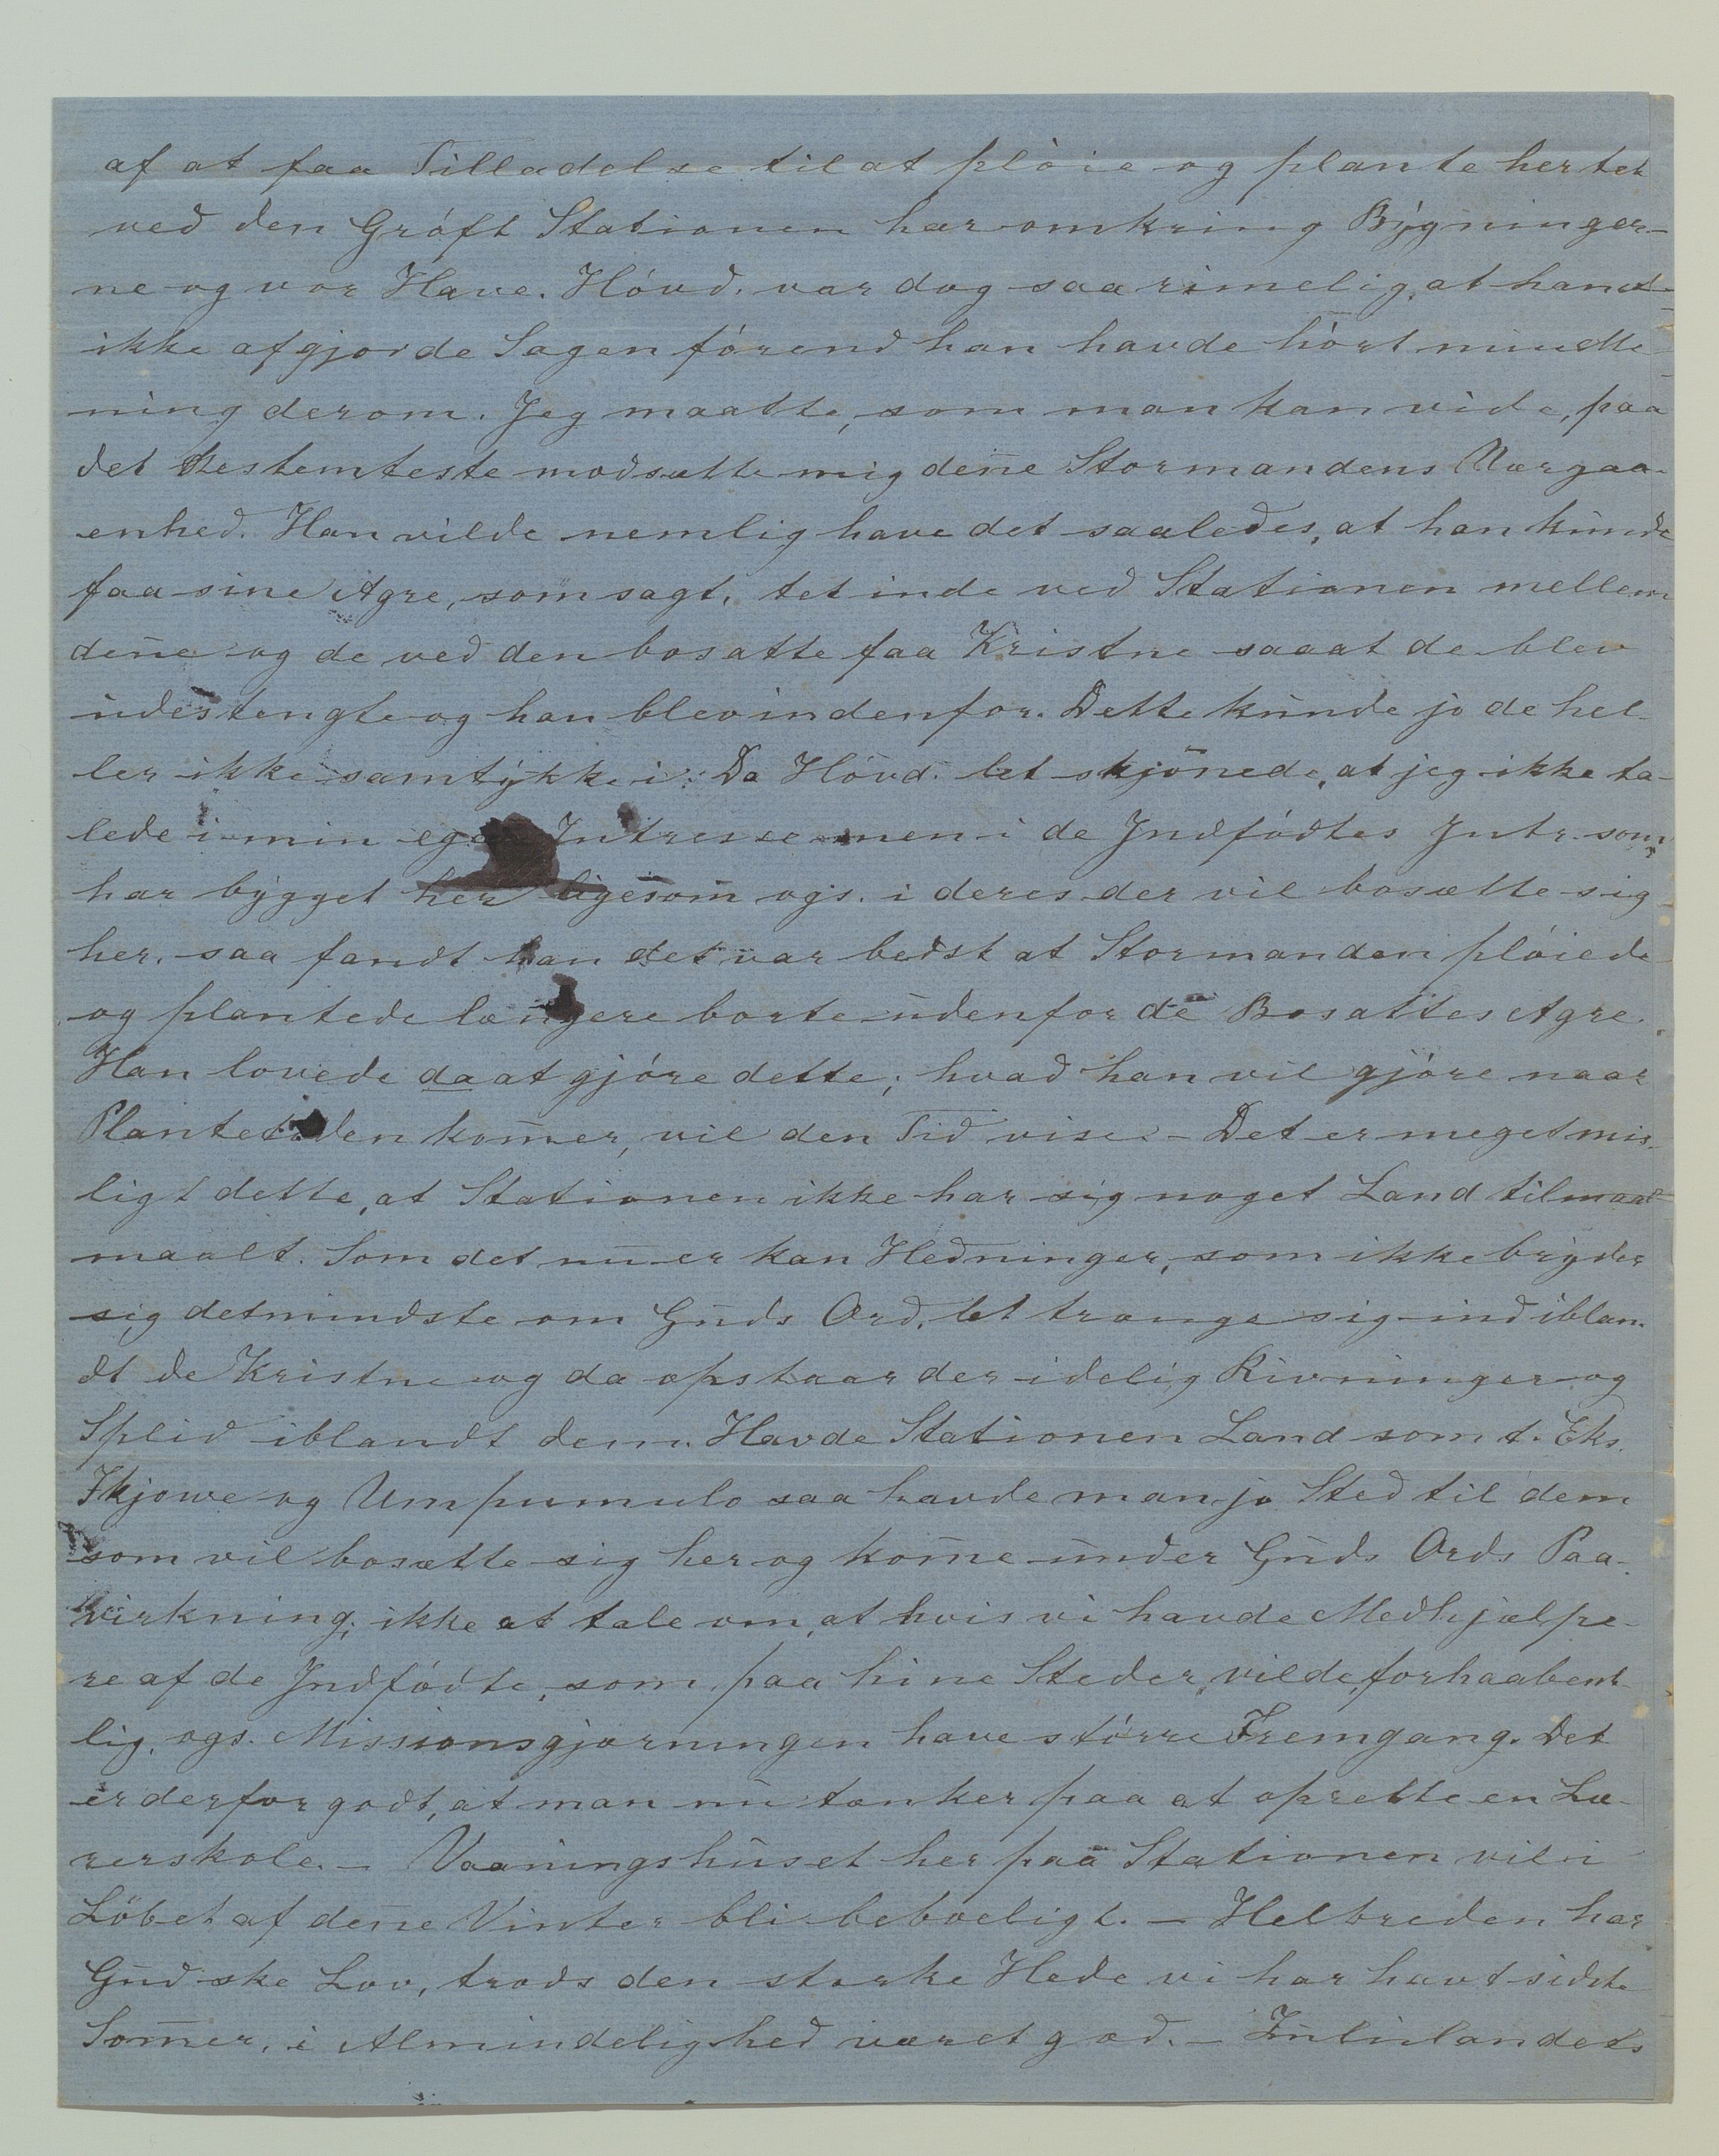 af at faa Tilladelse til at plöie og plante her tet
ved den Gröft Stationen har omkring Bygninger-
ne og vor Have. Hövd. var dog saa rimelig, at hand
ikke afgjorde Sagen förend han havde hört min Me-
ning derom. Jeg maatte, som man kan vide, paa
det bestemteste modsætte mig denne Stormandens Nærgaa-
enhed. Han vilde nemlig have det saaledes, at han kunde
faa sine Agre, som sagt, tet inde ved Stationen mellem
denne og de ved den bosatte faa Kristne saaat de blev
udestengte og han blev indenfor. Dette kunde jo de hel-
ler ikke samtykke i. Da Hövd. let skjönnede, at jeg ikke ta-
lede i min egen Intresse men i de Indfödtes Intr. som
har bygget her ligesom ogs. i deres der vil bosætte sig
her, saa fandt han det var bedst at Stormanden plöiede
og plantede længere borte udenfor de Bosattes Agre.
Han lovede da at gjöre dette; hvad han vil gjöre naar
Plantetiden kommer, vil den Tid vise. – Det er meget mis-
ligt dette, at Stationen ikke har sig noget Land tilmaal-
maalt. Som det nu er kan Hedninger, som ikke bryder
sig detmindste om Guds Ord, let trænge sig ind iblan-
dt de Kristne og da opstaar der idelig Rivninger og
Splid iblandt dem. Havde Stationen Land som t. Eks.
Ekjowe og Umpumulo saa havde man jo Sted til dem
som vil bosætte sig her og komme under Guds Ords Paa-
virkning; ikke at tale om, at hvis vi havde Medhjælpe-
re af de Indfödte, som paa hine Steder, vilde, forhaabent-
lig, ogs. Missionsgjærningen have större Fremgang. Det
er derfor godt, at man nu tænker paa at oprette en Læ-
rerskole. – Vaaningshuset her paa Stationen vil i
Löbet af denne Vinter bli beboeligt. – Helbreden har
Gud ske Lov, trods den stærke Hede vi har havt sidste
Sommer, i Almindelighed været god. – Zululandets